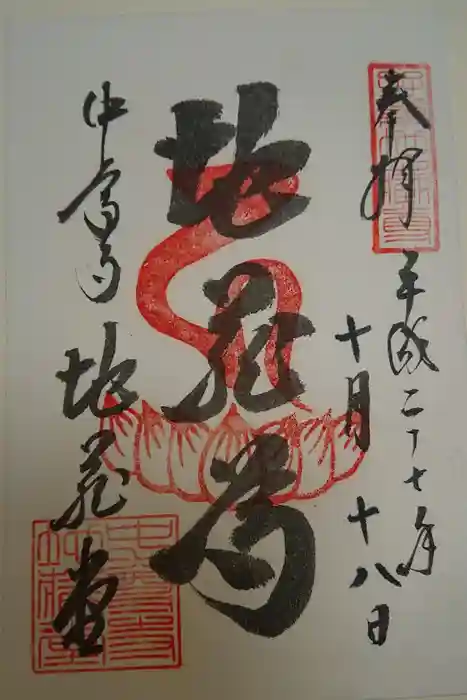 奉拝
平成二十七年
十月十八日
地蔵尊
中宮寺
地蔵堂